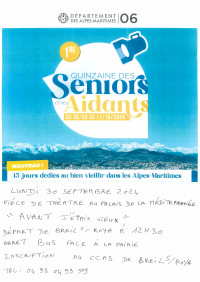 DÉPARTEMENT
DES ALPES-MARITIMES
06
1re
QUINZAINE DES
Seniors
et des
Aidants
DU 30/09 AU 11/10/2024
NOUVEAU !
15 jours dédiés au bien vieillir dans les Alpes-Maritimes
LUNDI 30 SEPTEMBRE 2024
PIÈCE DE THÉATRE AU PALAIS DE LA MÉDITERRANÉE
" AVANT J'ÉTAIS VIEUX "
DÉPART DE BREIL S/ROYA À 12H30
ARRÊT BUS FACE À LA MAIRIE
INSCRIPTION. AU CCAS DE BREIL S/ROYA
TEL: 04 93 04 99 99